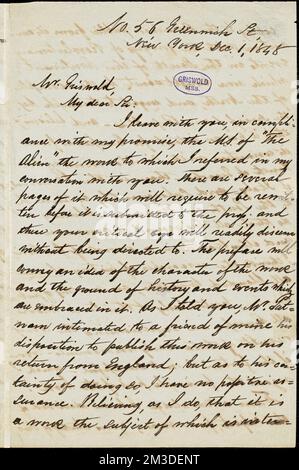 No. 56 Greenwich St
New York, Dec. 1, 1848
Mr. Griswold,
GRISWOLD
MSS.
My dear Sir:
I leave with you in compli-
ance with my promise, the MS. of "The
the work to which I referred in my
conversation with you. There are several
pages of it which will require to be rewrit-
ten before it is submitted to the press, and
these your critical eye will readily discern
without being directed to. The preface will
convey an idea of the character of the work
and the ground of history and events which
are embraced in it. As I told you, Mr. Put-
nam intimated to a friend of mine his
disposition to publish this work on his
return from England; but as to his cer-
tainty of doing so, I have no positive as-
surance. Believing, as I do that it is
a work the subject of which is
alamy
Image ID: 2M3DENT
www.alamy.com